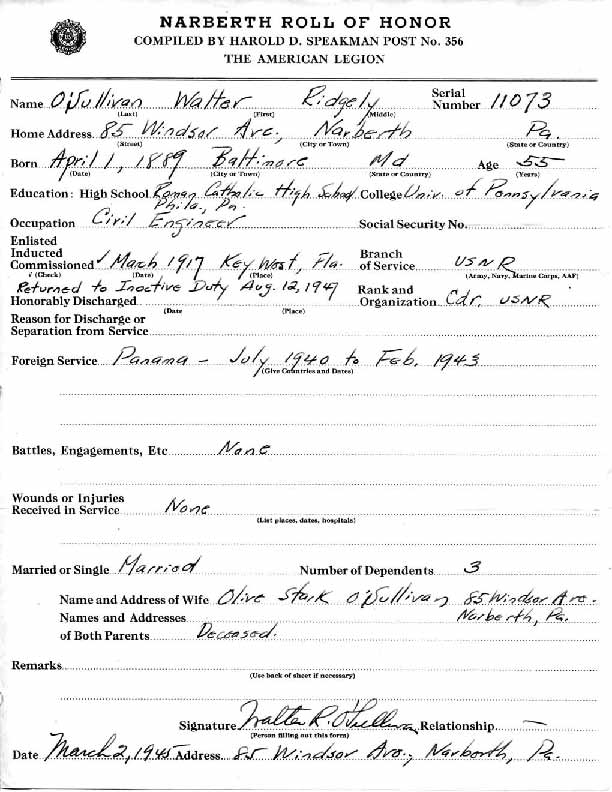 NARBERTH ROLL OF HONOR
COMPILED BY HAROLD D. SPEAKMAN POST No. 356
THE AMERICAN LEGION
Name O'Sullivan Walter Ridgely Serial Number 11073
(Last) (First) (Middle)
Home Address 85 Windsor Ave., Narberth Pa.
(Street) (City or Town) (State or Country)
Born April 1, 1889 Baltimore Md Age 55
(Date) (City or Town) (State or Country) (Years)
Education: High School Roman Catholic High School College Univ. of Pennsylvania
Phila., Pa.
Occupation Civil Engineer Social Security No.
Enlisted
Inducted Branch
Commissioned √ March 1917 Key West, Fla. of Service USNR
(Check) (Date) (Place) (Army, Navy, Marine Corps, AAF)
Returned to Inactive Duty Aug. 12, 194 Rank and
Honorably Discharged Organization Cdr. USNR
(Date (Place)
Reason for Discharge or
Separation from Service
Foreign Service Panama - July 1940 to Feb. 1943
(Give Countries and Dates)
Battles, Engagements, Etc None
Wounds or Injuries
Received in Service None
(List places, dates, hospitals)
Married or Single Married Number of Dependents 3
Name and Address of Wife Olive Stark O'Sullivan 85 Windsor Ave.
Names and Addresses Narberth, Pa.
of Both Parents Deceased.
Remarks
(Use back of sheet if necessary)
Signature Walter R. O'Sullivan Relationship —
(Person filling out this form)
Date March 2, 1945 Address 85 Windsor Ave., Narberth, Pa.